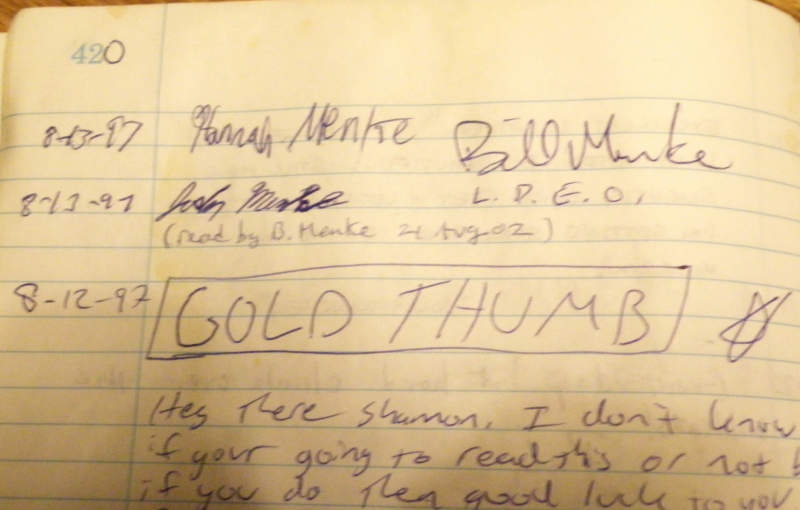 420
8-13-97 Hannah Menke Bill Menke
8-13-97 Menke L. D. E. O.
(read by B. Menke 21 Aug 02)
8-12-97 GOLD THUMB
Hey there Shannon, I don't know
if your going to read this or not
if you do then good luck to you